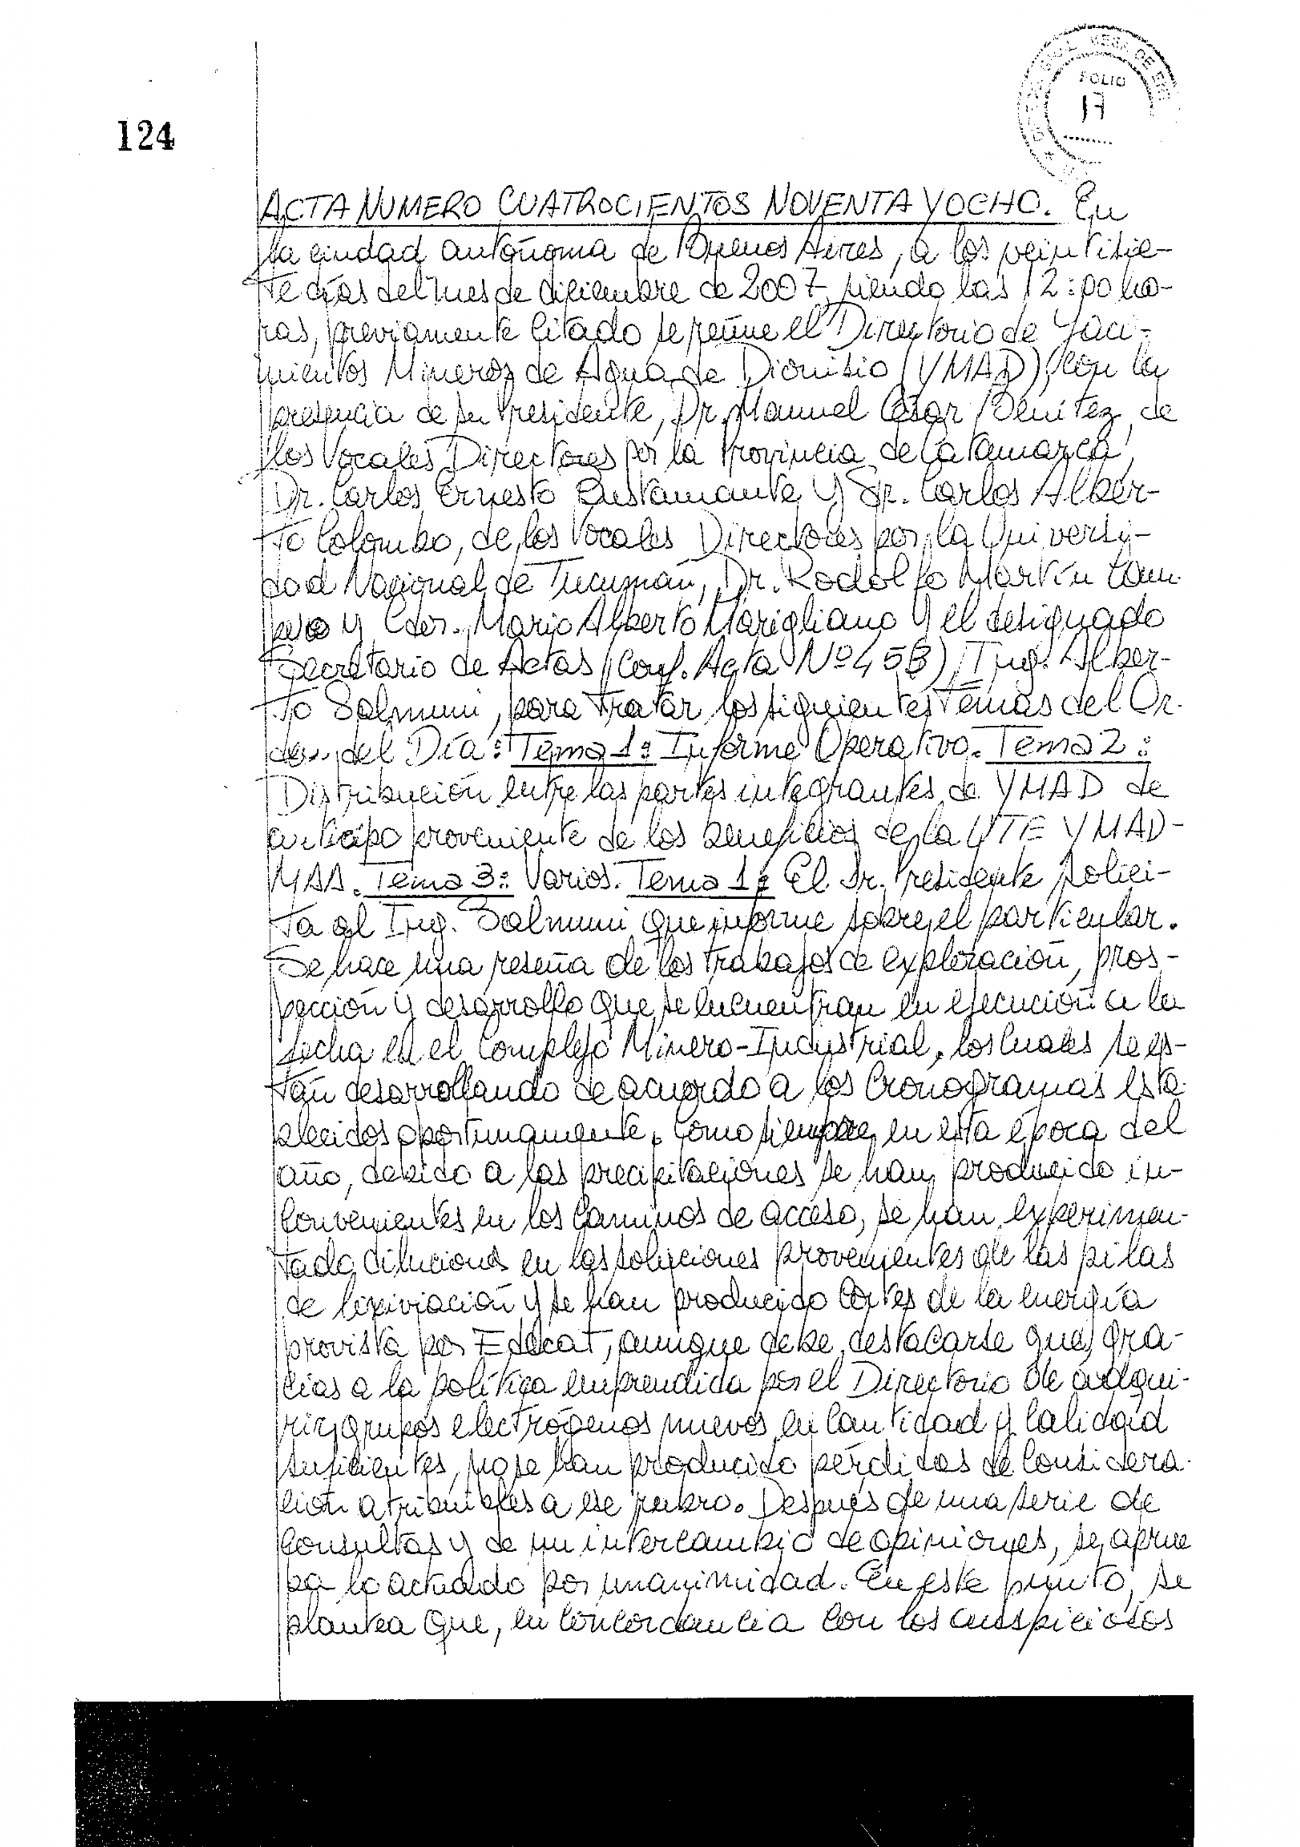 124
FOLIO
17
ACTA NUMERO CUATROCIENTOS NOVENTA Y OCHO. En
la ciudad autónoma de Buenos Aires, a los veintisie-
te días del mes de diciembre de 2007, siendo las 12:00 ho-
ras, previamente citado se reúne el Directorio de Yaci-
mientos Mineros de Agua de Dionisio (YMAD), con la
presencia de su Presidente, Dr. Manuel César Benítez, de
los Vocales Directores por la Provincia de Catamarca,
Dr. Carlos Ernesto Bustamante y Sr. Carlos Alber-
to Colombo, de los Vocales Directores por la Universi-
dad Nacional de Tucumán, Dr. Rodolfo Martín Cam-
pero y Cdor. Mario Alberto Marigliano y el designado
Secretario de Actas (Conf. Acta Nº 458), Ing. Alber-
to Salmuni, para tratar los siguientes Temas del Or-
den del Día: Tema 1: Informe Operativo. Tema 2:
Distribución entre las partes integrantes de YMAD de
anticipo proveniente de los beneficios de la UTE YMAD-
MAA. Tema 3: Varios. Tema 1: El Sr. Presidente solici-
ta al Ing. Salmuni que informe sobre el particular.
Se hace una reseña de los trabajos de exploración, pros-
pección y desarrollo que se encuentran en ejecución a la
fecha en el Complejo Minero-Industrial, los cuales se es-
tán desarrollando de acuerdo a los Cronogramas esta-
blecidos oportunamente. Como siempre, en esta época del
año, debido a las precipitaciones se han producido in-
convenientes en los caminos de acceso, se han experimen-
tado diluciones en las soluciones provenientes de las pilas
de lixiviación y se han producido cortes de la energía
provista por Edecat, aunque debe destacarse que, gra-
cias a la política emprendida por el Directorio de adqui-
rir grupos electrógenos nuevos, en cantidad y calidad
suficientes, no se han producido pérdidas de considera-
ción atribuibles a ese rubro. Después de una serie de
consultas y de un intercambio de opiniones, se aprue
ba lo actuado por unanimidad. En este punto, se
plantea que, en concordancia con los auspiciosos